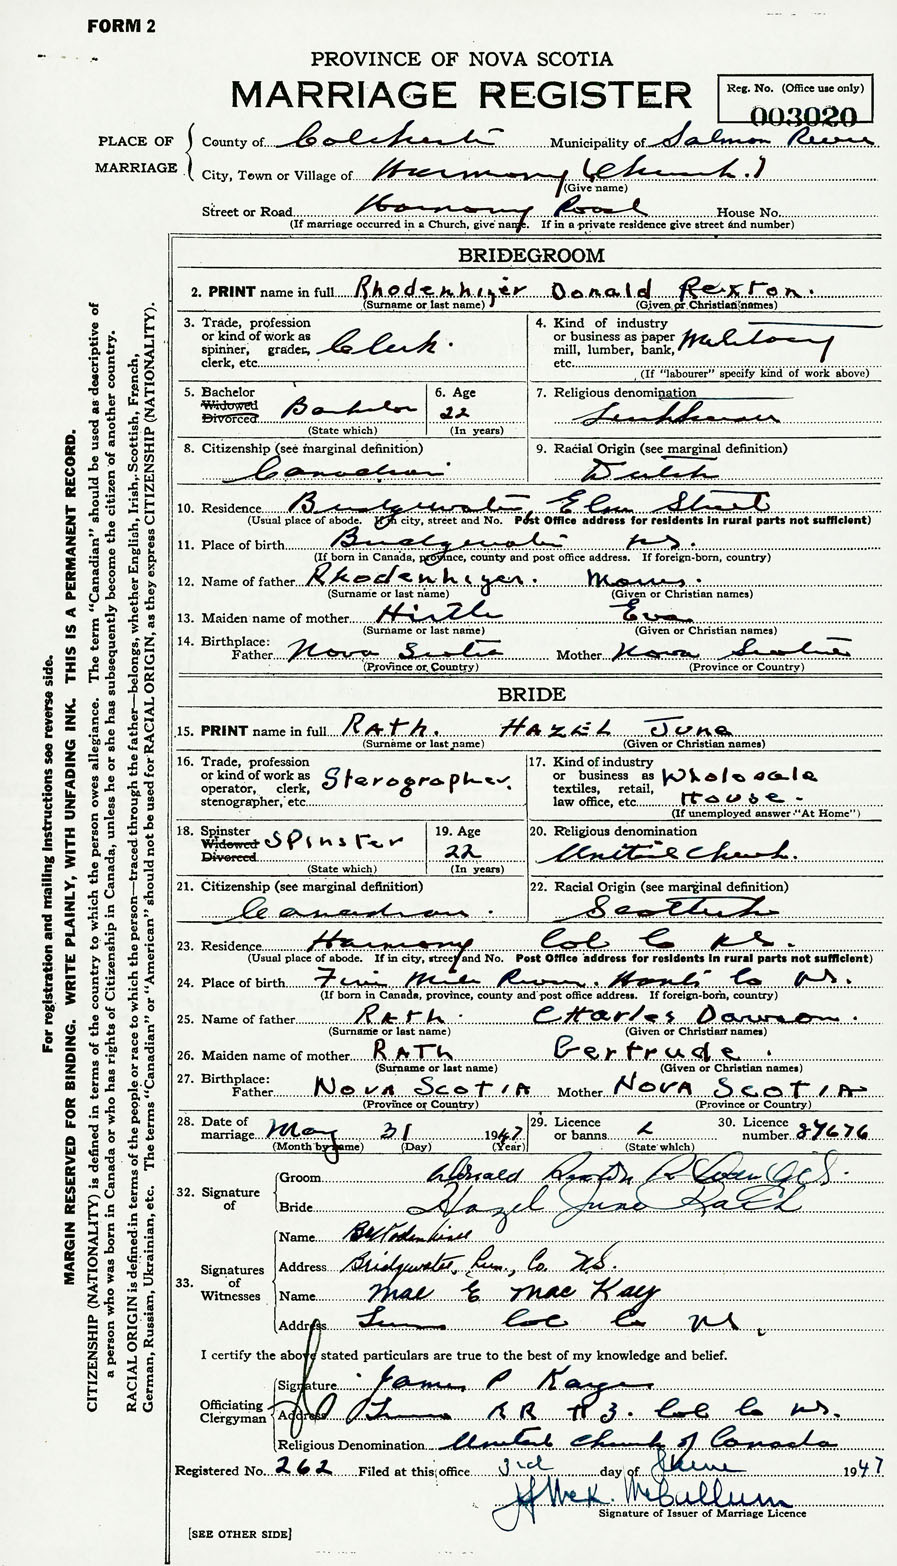 FORM 2
PROVINCE OF NOVA SCOTIA
MARRIAGE REGISTER
Reg. No. (Office use only)
003020
PLACE OF MARRIAGE
County of Colchester Municipality of Salmon River
City, Town or Village of Harmony (Church.)
(Give name)
Street or Road Harmony Road House No.
(If marriage occurred in a Church, give name. If in a private residence give street and number)
BRIDEGROOM
2. PRINT name in full Rhodenhizer Donald Rexton.
(Surname or last name) (Given or Christian names)
3. Trade, profession or kind of work as spinner, grader, clerk, etc. Clerk.
4. Kind of industry or business as paper mill, lumber, bank, etc. Military
(If "labourer" specify kind of work above)
5. Bachelor Widowed Divorced Bachelor
(State which)
6. Age 22
(In years)
7. Religious denomination
8. Citizenship (see marginal definition)
Canadian
9. Racial Origin (see marginal definition)
Dutch
10. Residence Bridgewater, Elm Street
(Usual place of abode. If in city, street and No. Post Office address for residents in rural parts not sufficient)
11. Place of birth Bridgewater NS.
(If born in Canada, province, county and post office address. If foreign-born, country)
12. Name of father Rhodenhizer.
(Surname or last name) (Given or Christian names)
13. Maiden name of mother Hirtle Eva
(Surname or last name) (Given or Christian names)
14. Birthplace:
Father Nova Scotia Mother Nova Scotia
(Province or Country) (Province or Country)
BRIDE
15. PRINT name in full RATH. HAZEL June
(Surname or last name) (Given or Christian names)
16. Trade, profession or kind of work as operator, clerk, stenographer, etc. Stenographer.
17. Kind of industry or business as textiles, retail, law office, etc. Wholesale House.
(If unemployed answer "At Home")
18. Spinster Widowed Divorced SPINSTER
(State which)
19. Age 22
(In years)
20. Religious denomination
United Church.
21. Citizenship (see marginal definition)
Canadian.
22. Racial Origin (see marginal definition)
Scottish
23. Residence Harmony Col Co NS.
(Usual place of abode. If in city, street and No. Post Office address for residents in rural parts not sufficient)
24. Place of birth Five Mile River. Hants Co NS.
(If born in Canada, province, county and post office address. If foreign-born, country)
25. Name of father RATH. CHARLES DAWSON.
(Surname or last name) (Given or Christian names)
26. Maiden name of mother RATH Gertrude.
(Surname or last name) (Given or Christian names)
27. Birthplace:
Father NOVA SCOTIA Mother NOVA SCOTIA
(Province or Country) (Province or Country)
28. Date of marriage May 31 1947
(Month by name) (Day) (Year)
29. Licence or banns L
(State which)
30. Licence number 87676
32. Signature of
Groom Donald Rexton
Bride Hazel June Rath
33. Signatures of Witnesses
Name
Address Bridgewater, Lun., Co. NS.
Name Mae E Mac Kay
Address Truro Col Co NS.
I certify the above stated particulars are true to the best of my knowledge and belief.
Officiating Clergyman
Signature James P
Address Truro RR # 3. Col Co NS.
Religious Denomination United Church of Canada
Registered No. 262 Filed at this office 3rd day of June 1947
McCullum
Signature of Issuer of Marriage Licence
[SEE OTHER SIDE]
For registration and mailing instructions see reverse side.
MARGIN RESERVED FOR BINDING. WRITE PLAINLY, WITH UNFADING INK. THIS IS A PERMANENT RECORD.
CITIZENSHIP (NATIONALITY) is defined in terms of the country to which the person owes allegiance. The term "Canadian" should be used as descriptive of
a person who was born in Canada or who has rights of Citizenship in Canada, unless he or she has subsequently become the citizen of another country.
RACIAL ORIGIN is defined in terms of the people or race to which the person—traced through the father—belongs, whether English, Irish, Scottish, French,
German, Russian, Ukrainian, etc. The terms "Canadian" or "American" should not be used for RACIAL ORIGIN, as they express CITIZENSHIP (NATIONALITY).